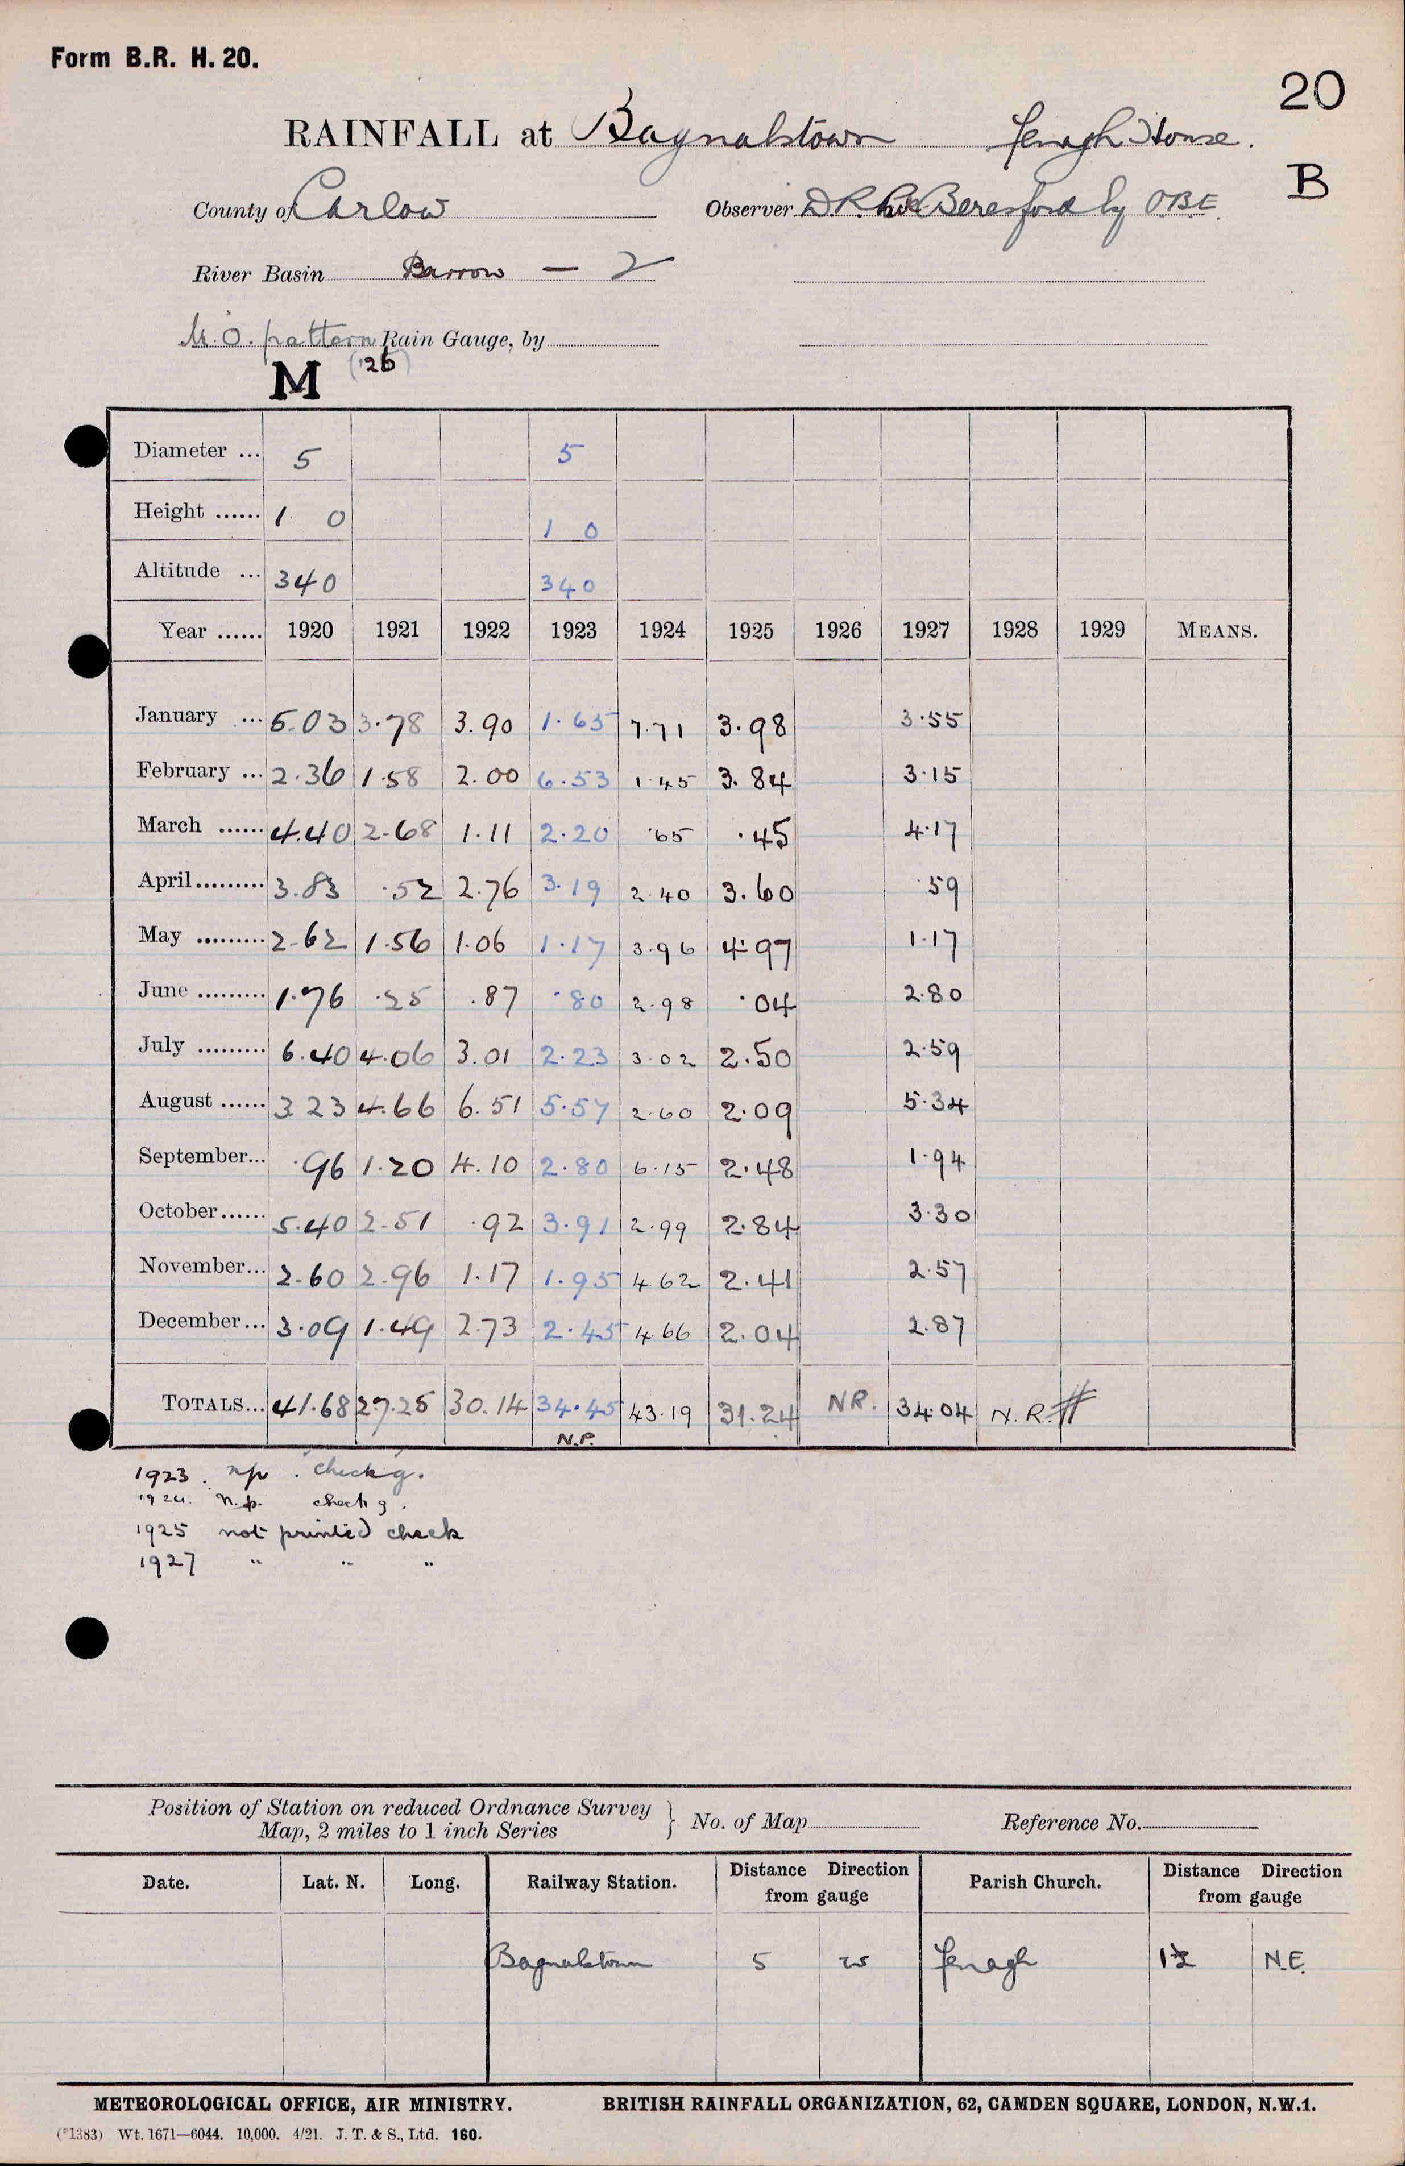 Form B.R. H. 20.
20
RAINFALL at Bagnalstown Fenagh House.
B
County of Carlow Observer D.R. Beresford Esq OBE.
River Basin Barrow — 2
M.O. pattern Rain Gauge, by
M ('26)
Diameter ... 5 5
Height ...... 1 0 1 0
Altitude ... 340 340
Year ...... 1920 1921 1922 1923 1924 1925 1926 1927 1928 1929 MEANS.
January ... 5.03 3.78 3.90 1.65 7.71 3.98 3.55
February ... 2.36 1.58 2.00 6.53 1.45 3.84 3.15
March ...... 4.40 2.68 1.11 2.20 .65 .45 4.17
April......... 3.83 .52 2.76 3.19 2.40 3.60 .59
May ......... 2.62 1.56 1.06 1.17 3.96 4.97 1.17
June ......... 1.76 .25 .87 .80 2.98 .04 2.80
July ......... 6.40 4.06 3.01 2.23 3.02 2.50 2.59
August ...... 3.23 4.66 6.51 5.57 2.60 2.09 5.34
September... .96 1.20 4.10 2.80 6.15 2.48 1.94
October...... 5.40 2.51 .92 3.91 2.99 2.84 3.30
November... 2.60 2.96 1.17 1.95 4.62 2.41 2.57
December... 3.09 1.49 2.73 2.45 4.66 2.04 2.87
TOTALS... 41.68 27.25 30.14 34.45 43.19 31.24 NR. 34.04 N.R. #
N.P.
1923. np. checkg.
1924. n.p. checkg.
1925 not printed check
1927 " " "
Position of Station on reduced Ordnance Survey
Map, 2 miles to 1 inch Series } No. of Map Reference No.
Date. Lat. N. Long. Railway Station. Distance Direction from gauge Parish Church. Distance Direction from gauge
Bagnalstown 5 W Fenagh 1½ N.E.
METEOROLOGICAL OFFICE, AIR MINISTRY. BRITISH RAINFALL ORGANIZATION, 62, CAMDEN SQUARE, LONDON, N.W.1.
(*1383) Wt. 1671—6044. 10,000. 4/21. J. T. & S., Ltd. 160.